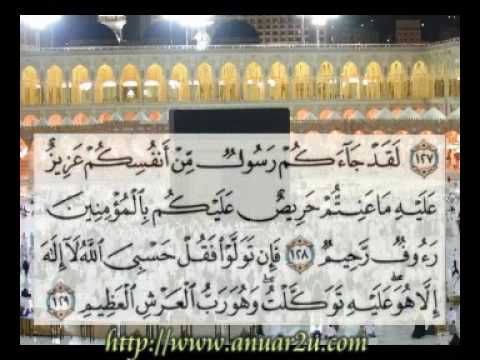 ﴿١٢٧﴾ لَقَدْ جَاءَكُمْ رَسُولٌ مِّنْ أَنفُسِكُمْ عَزِيزٌ
عَلَيْهِ مَا عَنِتُّمْ حَرِيصٌ عَلَيْكُم بِالْمُؤْمِنِينَ
رَءُوفٌ رَّحِيمٌ ﴿١٢٨﴾ فَإِن تَوَلَّوْا فَقُلْ حَسْبِيَ اللَّهُ لَا إِلَٰهَ
إِلَّا هُوَ عَلَيْهِ تَوَكَّلْتُ وَهُوَ رَبُّ الْعَرْشِ الْعَظِيمِ ﴿١٢٩﴾
http://www.anuar2u.com